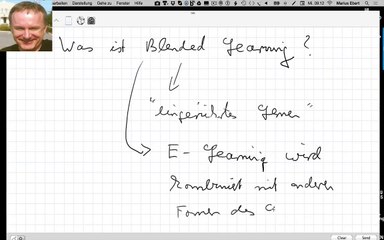 bearbeiten Darstellung Gehe zu Fenster Hilfe
14. 09:12 Marius Ebert
Was ist Blended Learning?
"eingerührtes Lernen"
E-Learning wird
kombiniert mit anderen
Formen des
Clear Send